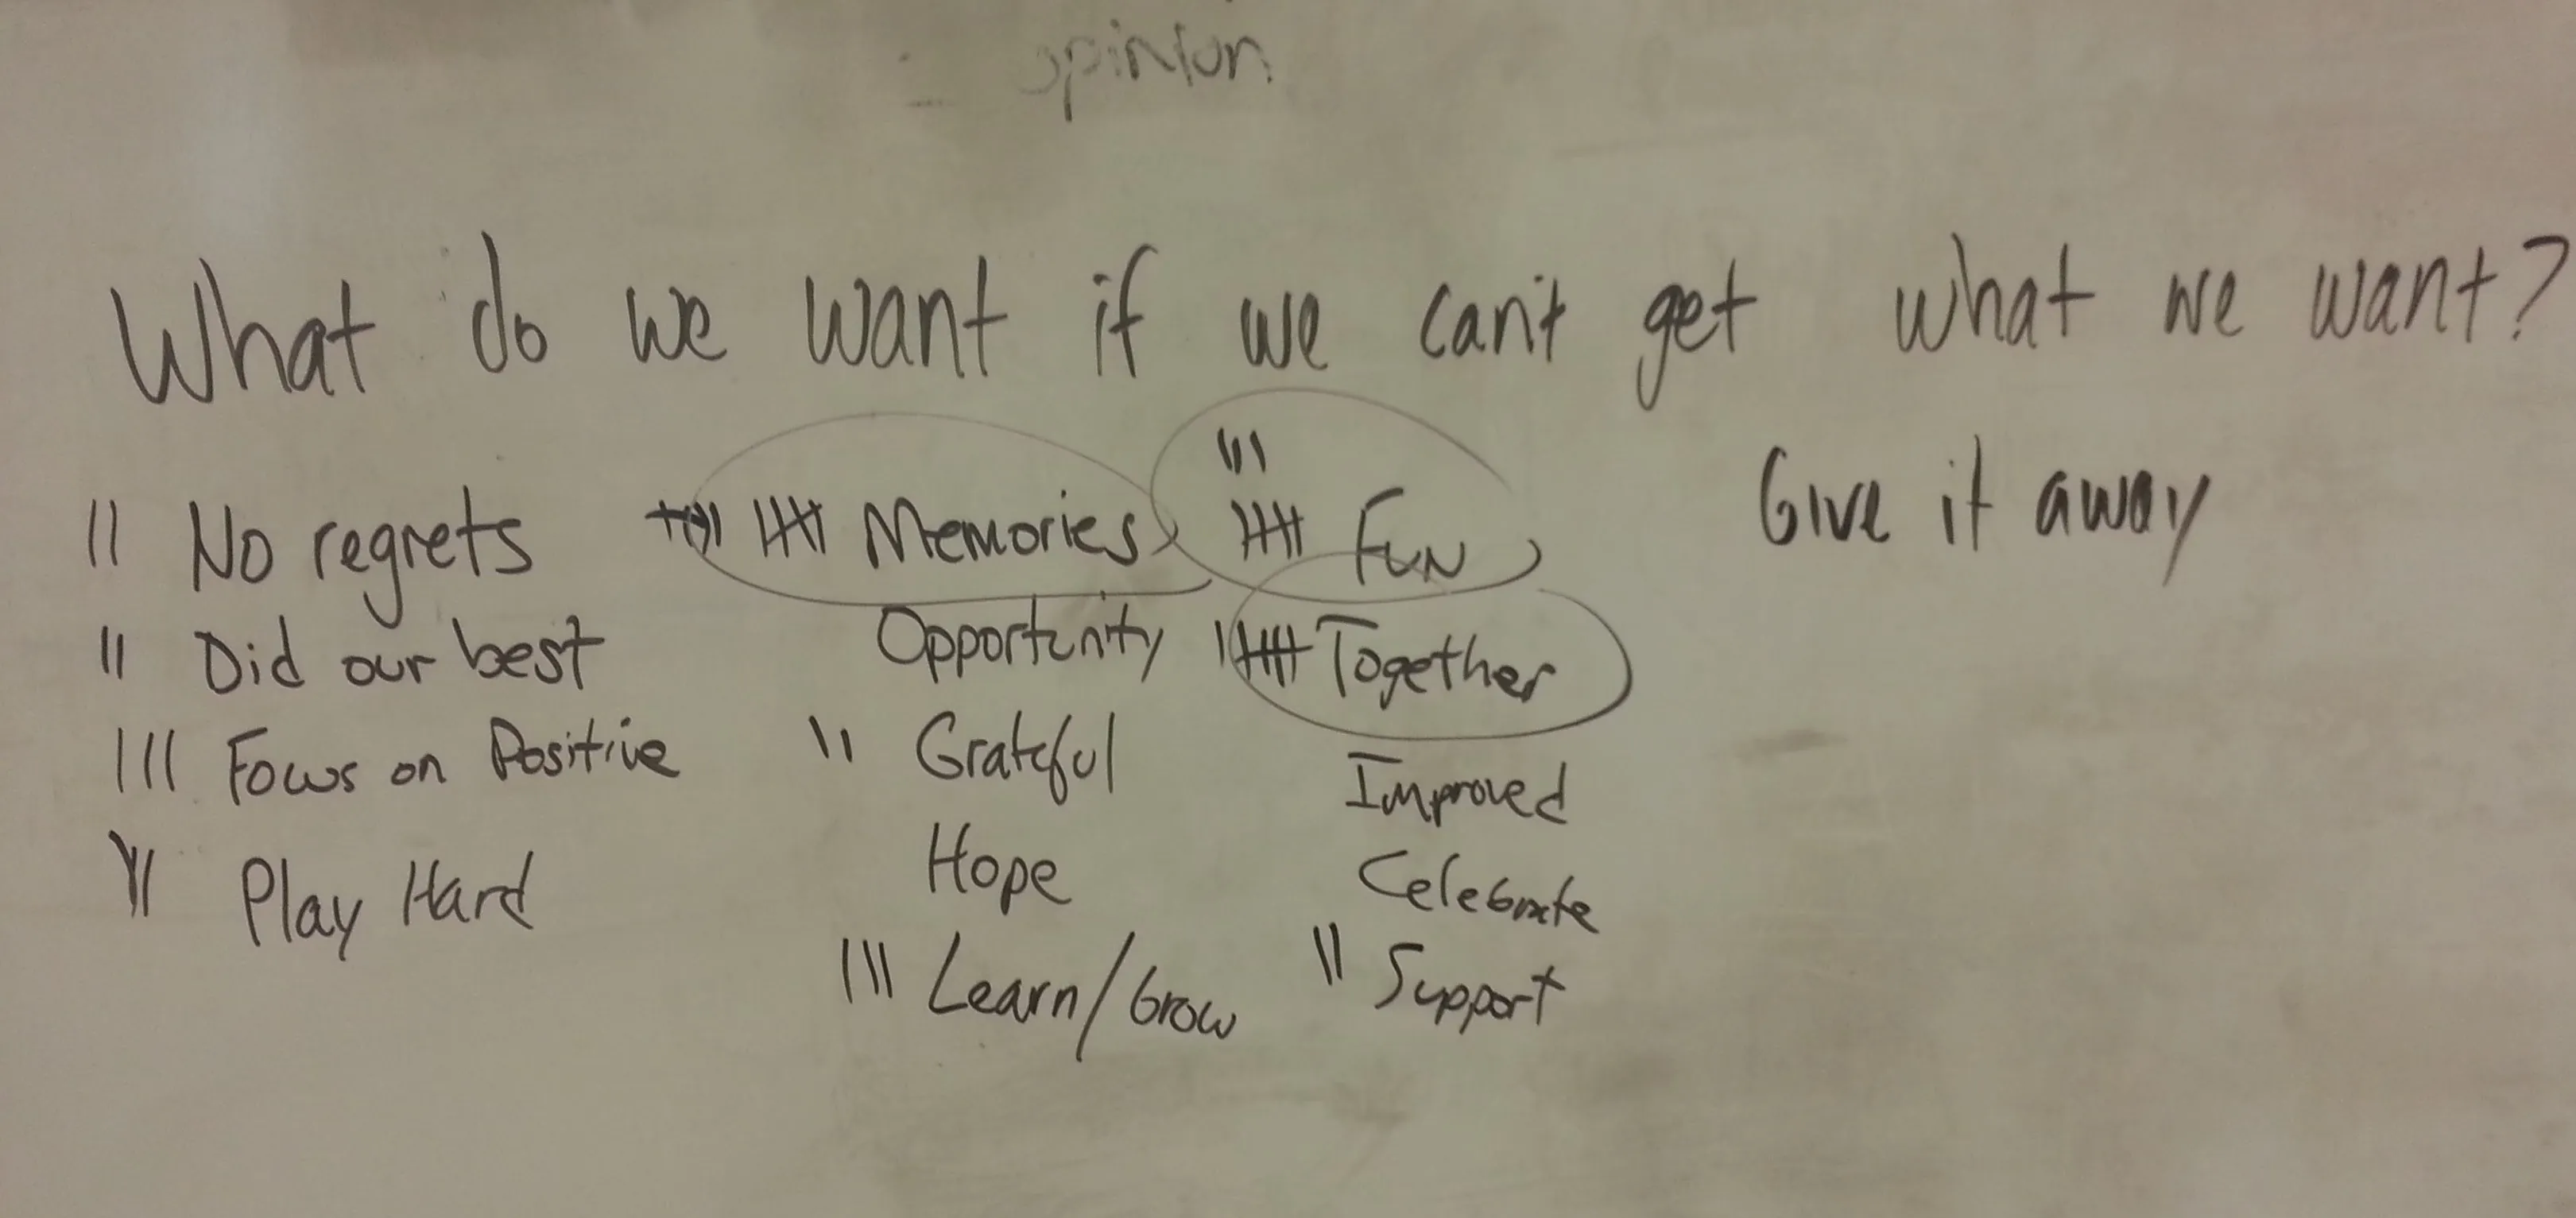 opinion
What do we want if we can't get what we want?
No regrets
Did our best
Focus on Positive
Play Hard
Memories
Opportunity
Grateful
Hope
Learn/Grow
Fun
Together
Improved
Celebrate
Support
Give it away